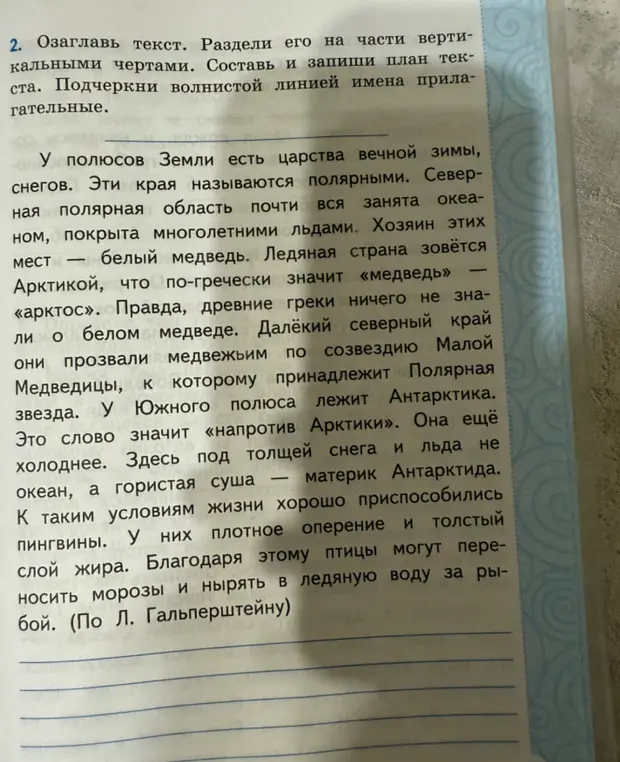 2. Озаглавь текст. Раздели его на части верти-
кальными чертами. Составь и запиши план тек-
ста. Подчеркни волнистой линией имена прила-
гательные.
У полюсов Земли есть царства вечной зимы,
снегов. Эти края называются полярными. Север-
ная полярная область почти вся занята океа-
ном, покрыта многолетними льдами. Хозяин этих
мест — белый медведь. Ледяная страна зовётся
Арктикой, что по-гречески значит «медведь» —
«арктос». Правда, древние греки ничего не зна-
ли о белом медведе. Далёкий северный край
они прозвали медвежьим по созвездию Малой
Медведицы, к которому принадлежит Полярная
звезда. У Южного полюса лежит Антарктика.
Это слово значит «напротив Арктики». Она ещё
холоднее. Здесь под толщей снега и льда не
океан, а гористая суша — материк Антарктида.
К таким условиям жизни хорошо приспособились
пингвины. У них плотное оперение и толстый
слой жира. Благодаря этому птицы могут пере-
носить морозы и нырять в ледяную воду за ры-
бой. (По Л. Гальперштейну)